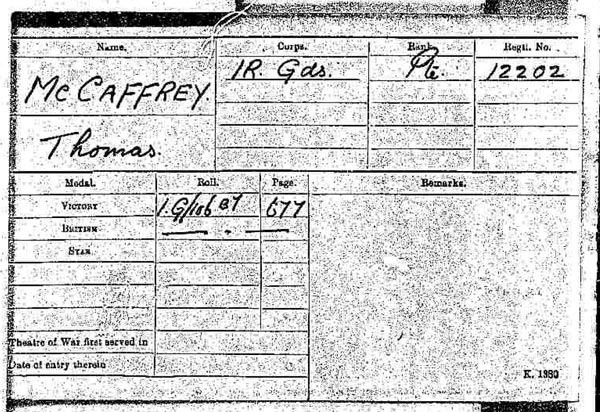 Name. Corps. Rank. Regtl. No.
McCAFFREY. IR. Gds. Pte. 12202
Thomas.
Medal. Roll. Page. Remarks.
VICTORY I.G/106 B7 677
BRITISH — . —
STAR
Theatre of War first served in
Date of entry therein
K. 1380